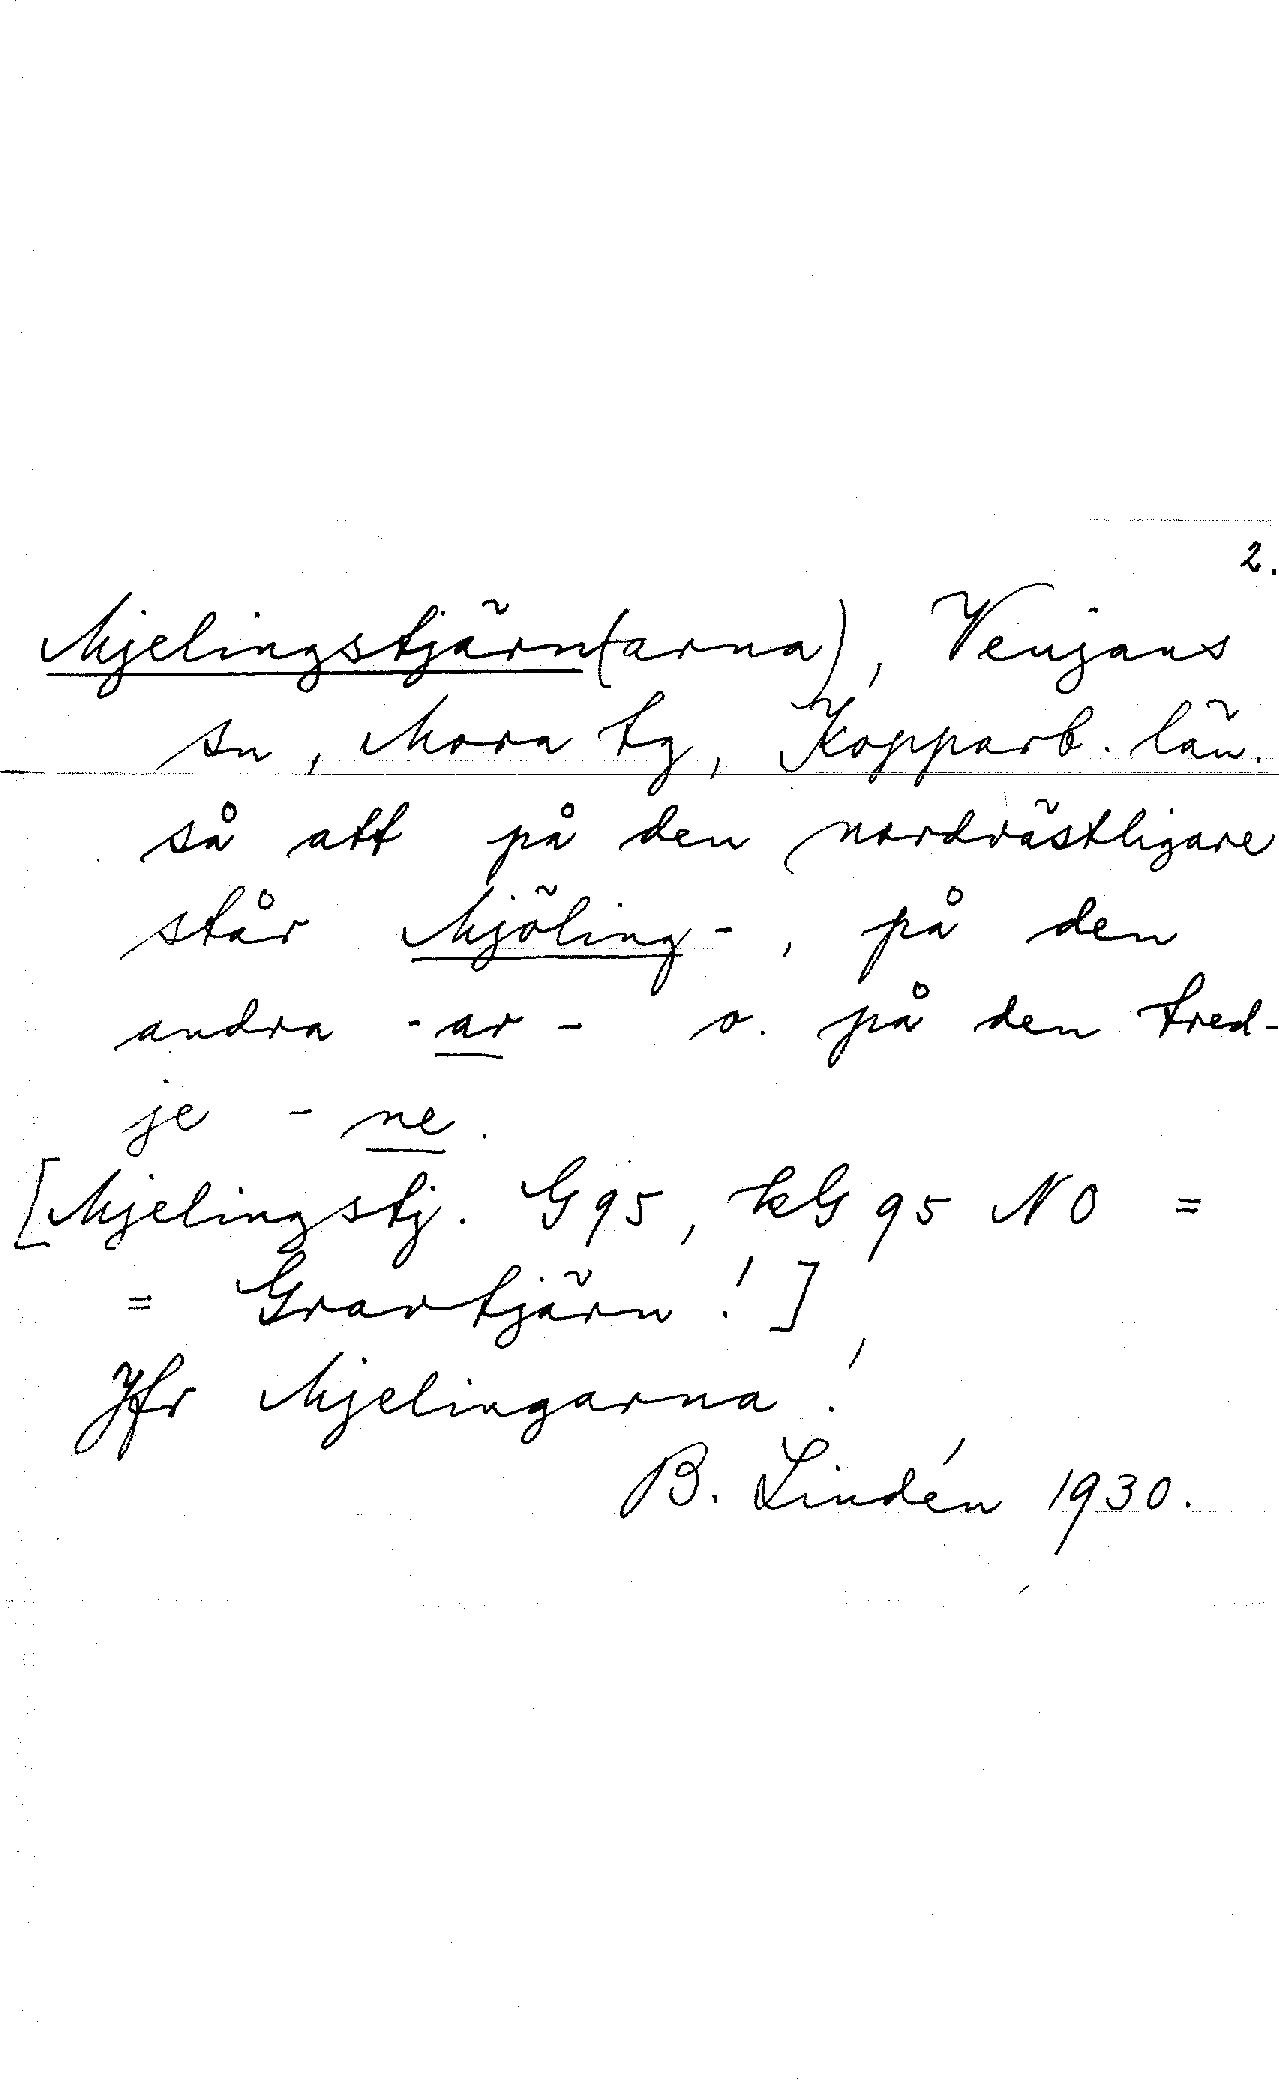 2.
Mjelingstjärn(arna), Venjans
sn, Mora tg, Kopparb. län.
så att på den nordvästligare
står Mjöling-, på den
andra -ar- o. på den tred-
je -ne.
[Mjelingstj. G95, kG 95 NO =
= Gravtjärn!]
Jfr Mjelingarna!
B. Lindén 1930.